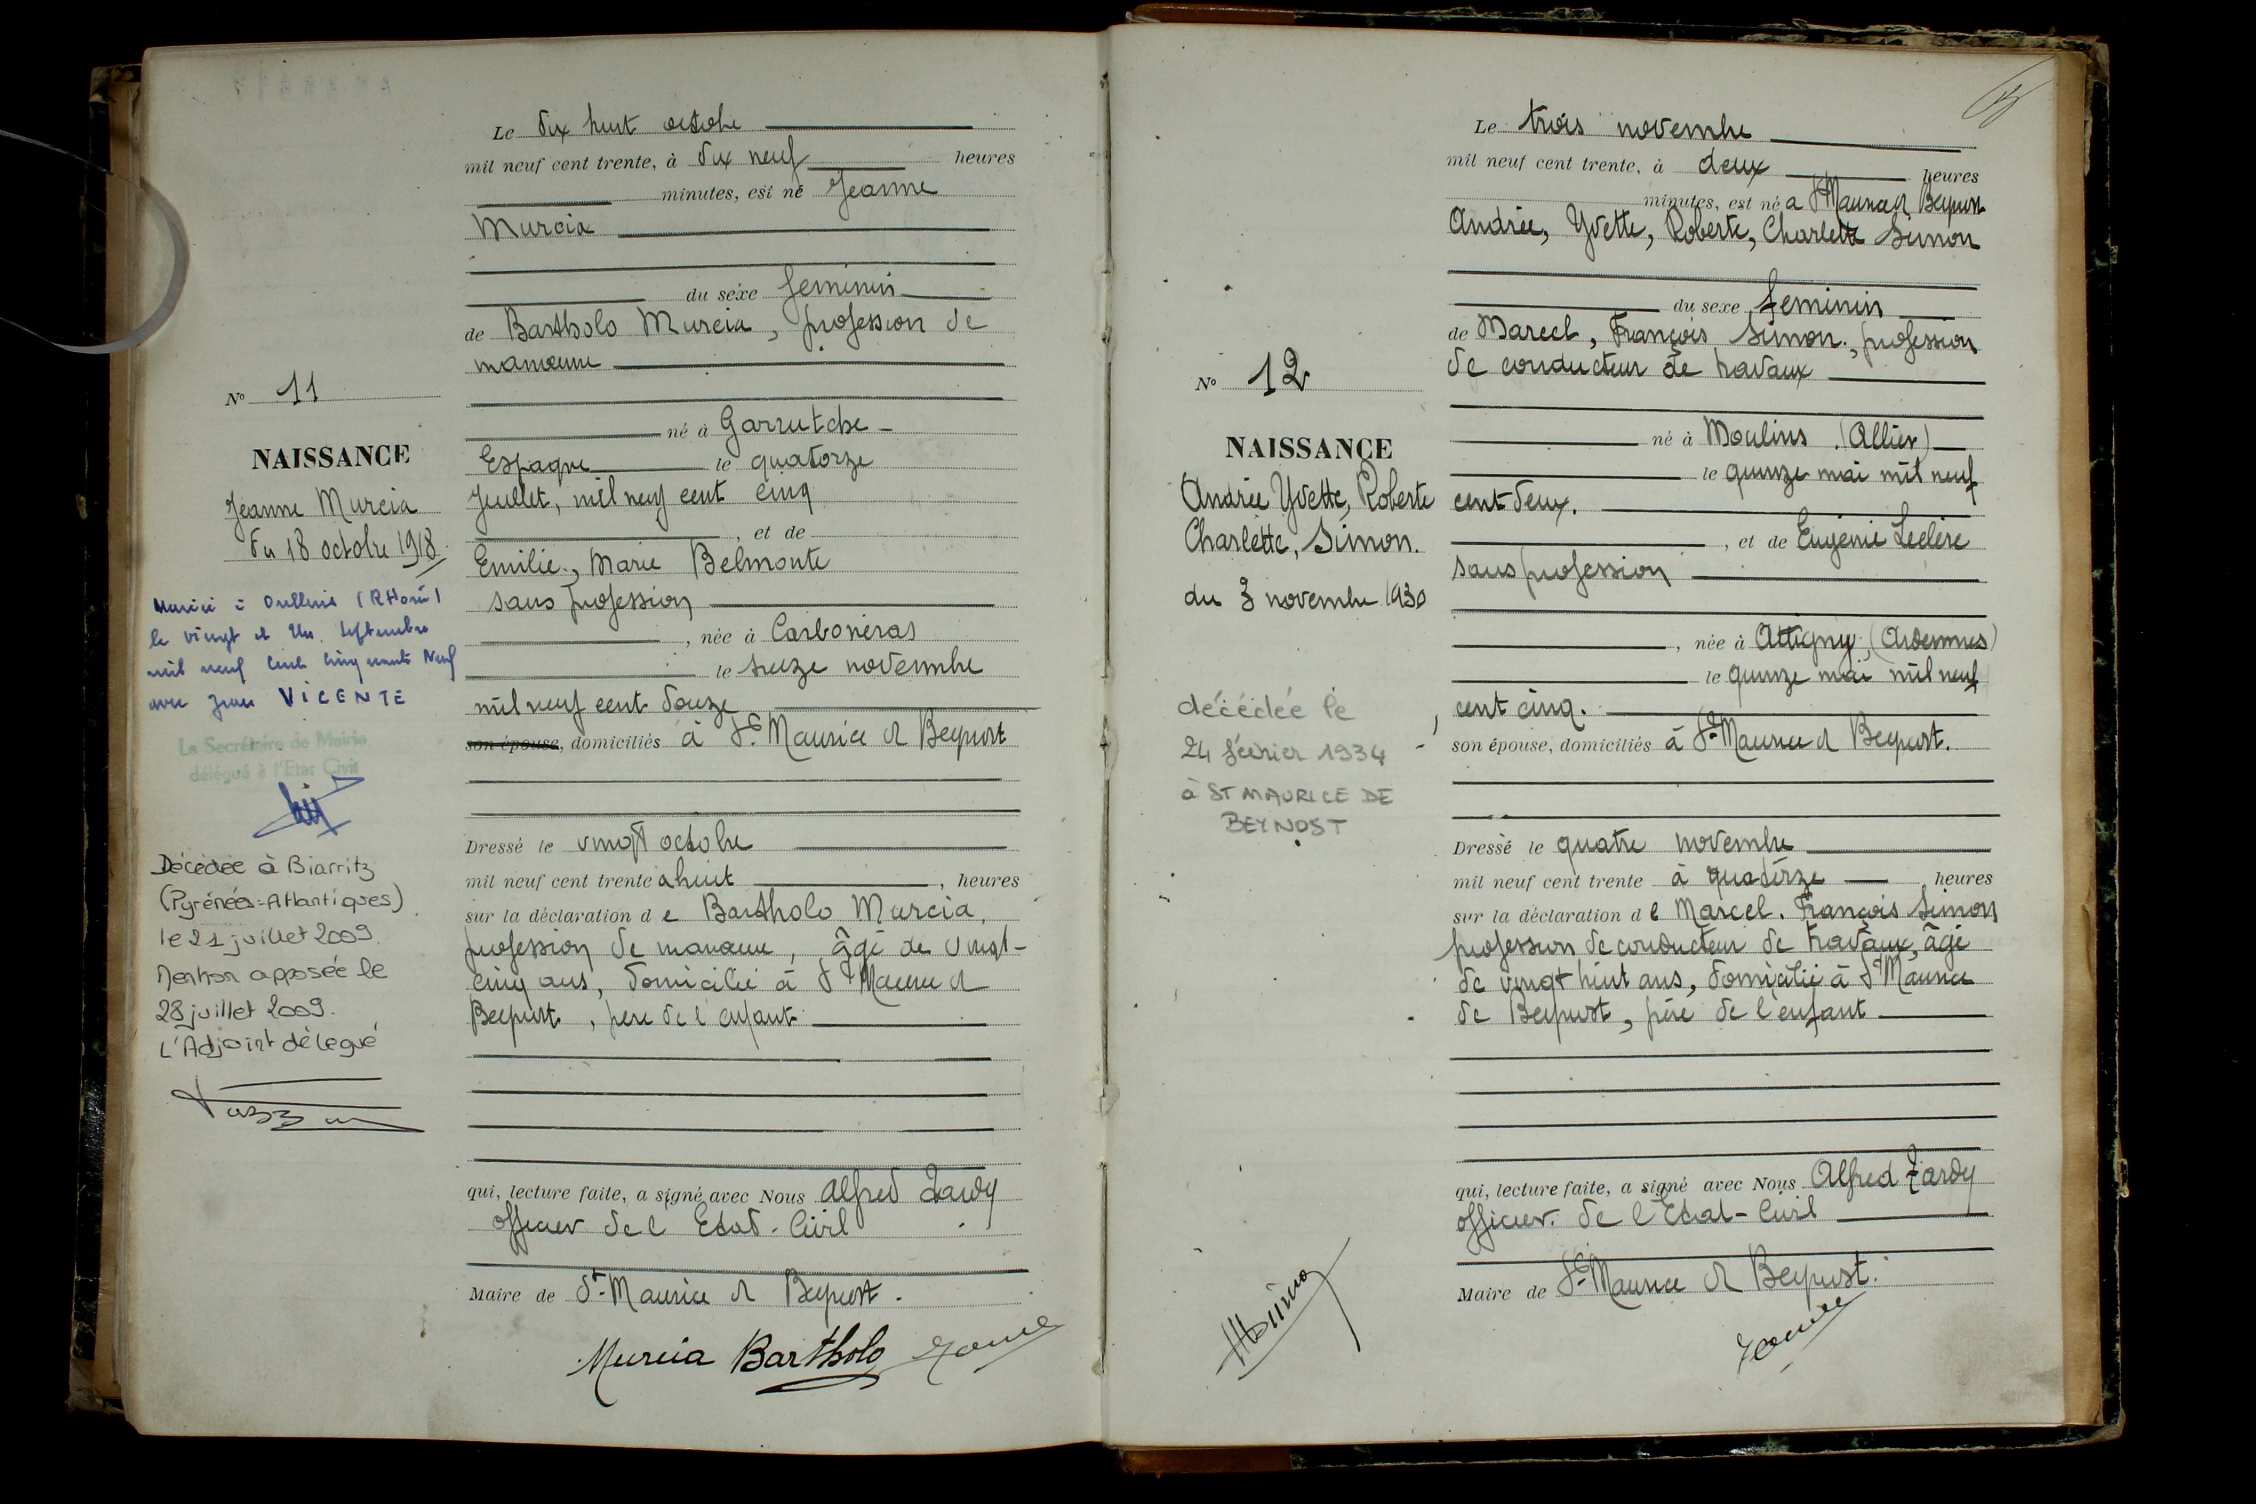 Le dix huit octobre
mil neuf cent trente, à dix neuf heures
minutes, est né Jeanne
Murcia
du sexe feminin
de Bartholo Murcia, profession de
manœuvre
né à Garrutche
Espagne le quatorze
Juillet, mil neuf cent cinq
, et de
Emilie, Marie Belmonte
sans profession
, née à Carboneras
le treize novembre
mil neuf cent douze
son épouse, domiciliés à St Maurice de Beynost
Dressé le vingt octobre
mil neuf cent trente à huit, heures
sur la déclaration de Bartholo Murcia,
profession de manœuvre, âgé de vingt-
cinq ans, domicilié à St Maurice de
Beynost, père de l'enfant
qui, lecture faite, a signé avec Nous Alfred Tardy
officier de l'Etat-Civil
Maire de St Maurice de Beynost.
Murcia Bartholo
No 11
NAISSANCE
Jeanne Murcia
du 18 octobre 1918
Mariée à Oullins (Rhône)
le vingt et un septembre
mil neuf cent cinquante Neuf
avec Jean VICENTE
Le Secrétaire de Mairie
délégué à l'Etat Civil
Décédée à Biarritz
(Pyrénées-Atlantiques)
le 21 juillet 2009.
Mention apposée le
28 juillet 2009.
L'Adjoint délégué
Le trois novembre
mil neuf cent trente, à deux heures
minutes, est né à St Maurice de Beynost
Andrée, Yvette, Roberte, Charlette Simon
du sexe feminin
de Marcel, François Simon, profession
de conducteur de travaux
né à Moulins (Allier)
le quinze mai mil neuf
cent deux.
, et de Eugénie Leclère
sans profession
, née à Attigny, (Ardennes)
le quinze mai mil neuf
cent cinq.
son épouse, domiciliés à St Maurice de Beynost.
Dressé le quatre novembre
mil neuf cent trente à quatorze heures
sur la déclaration de Marcel. François Simon
profession de conducteur de travaux, âgé
de vingt huit ans, domicilié à St Maurice
de Beynost, père de l'enfant
qui, lecture faite, a signé avec Nous Alfred Tardy
officier de l'Etat-Civil
Maire de St Maurice de Beynost.
No 12
NAISSANCE
Andrée Yvette, Roberte
Charlette, Simon.
du 3 novembre 1930
décédée le
24 février 1934
à ST MAURICE DE
BEYNOST